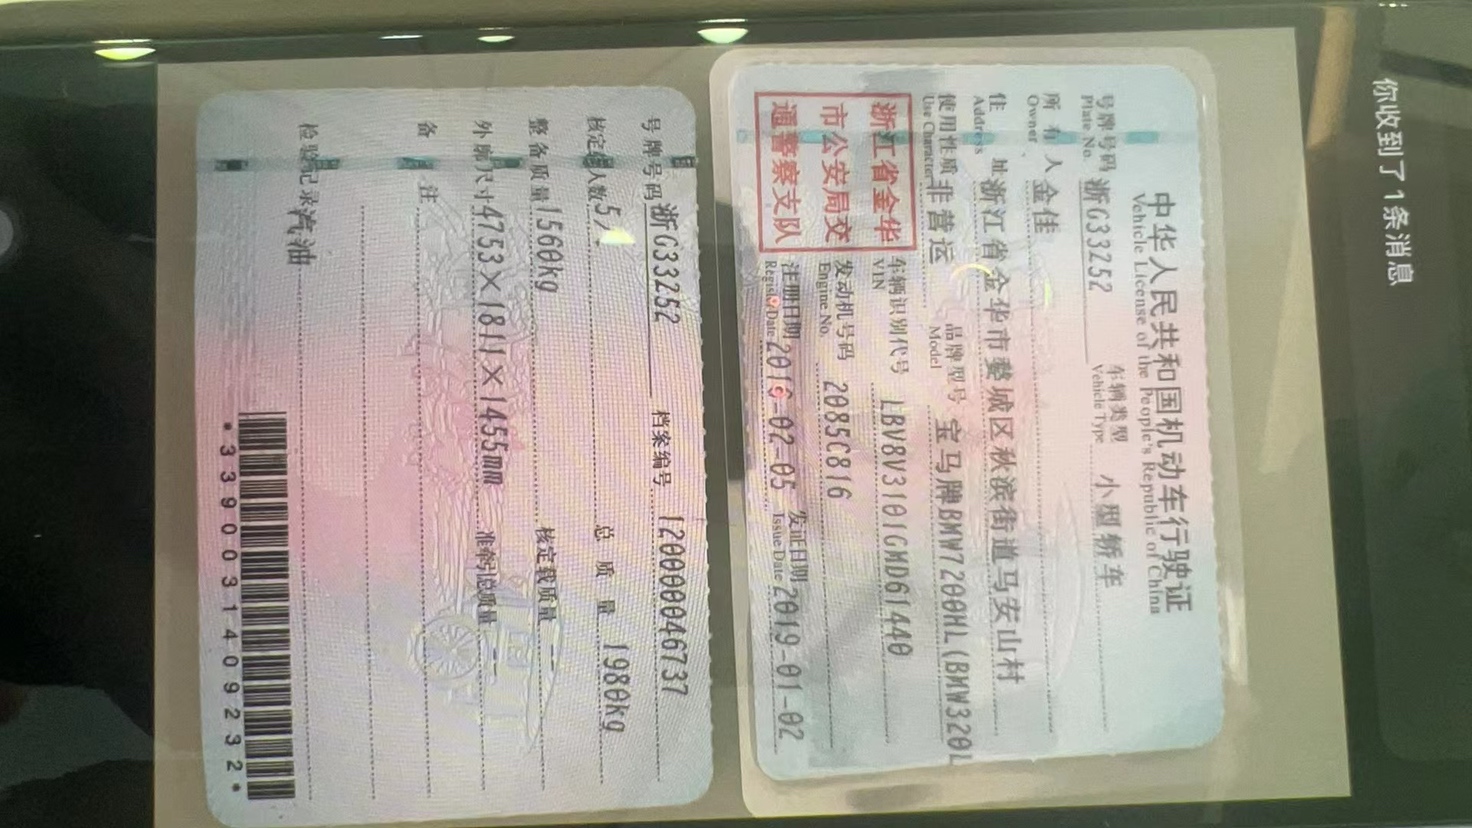 你收到了1条消息
中华人民共和国机动车行驶证
Vehicle License of the People's Republic of China
号牌号码 浙G33252 车辆类型 小型轿车
Plate No. Vehicle Type
所有人 金佳
Owner
住址 浙江省金华市婺城区秋滨街道马安山村
Address
使用性质 非营运 品牌型号 宝马牌BMW7200HL(BMW320L
Use Character Model
浙江省金华
市公安局交
通警察支队
车辆识别代号 LBV8V3101GMD61440
VIN
发动机号码 2085C816
Engine No.
注册日期 发证日期 2019-01-02
Register Date Issue Date
号牌号码 浙G33252 档案编号 120000046737
核定载人数 5人 总质量 1980kg
整备质量 1560kg 核定载质量 --
外廓尺寸 4753×1811×1455mm 准牵引总质量 --
备注
检验记录 汽油
*3390031409232*